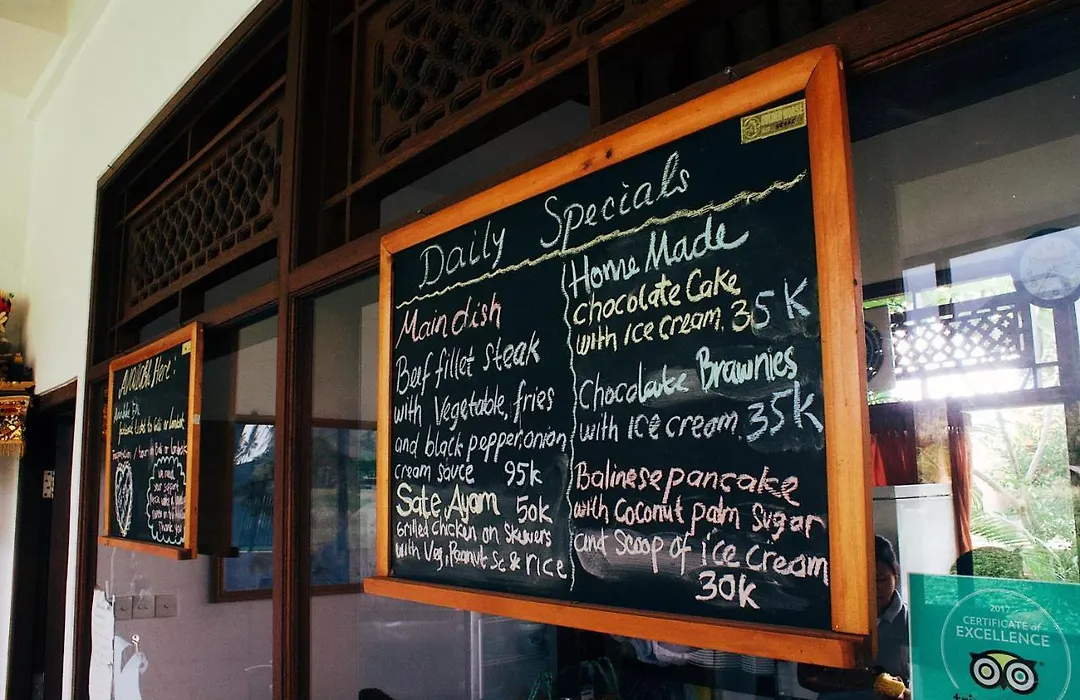 Daily Specials
Main dish
Beef fillet steak
with Vegetable, fries
and black pepper, onion
cream sauce 95k
Sate Ayam 50k
Grilled Chicken on Skuwers
with Veg, Peanut Sc & rice
Home Made
chocolate Cake
with ice cream. 35K
Chocolate Brawnies
with ice cream. 35k
Balinese pancake
with Coconut palm Sugar
and Scoop of ice cream
30k
Available Here!
We need
your support
Thank you
2017
CERTIFICATE of
EXCELLENCE